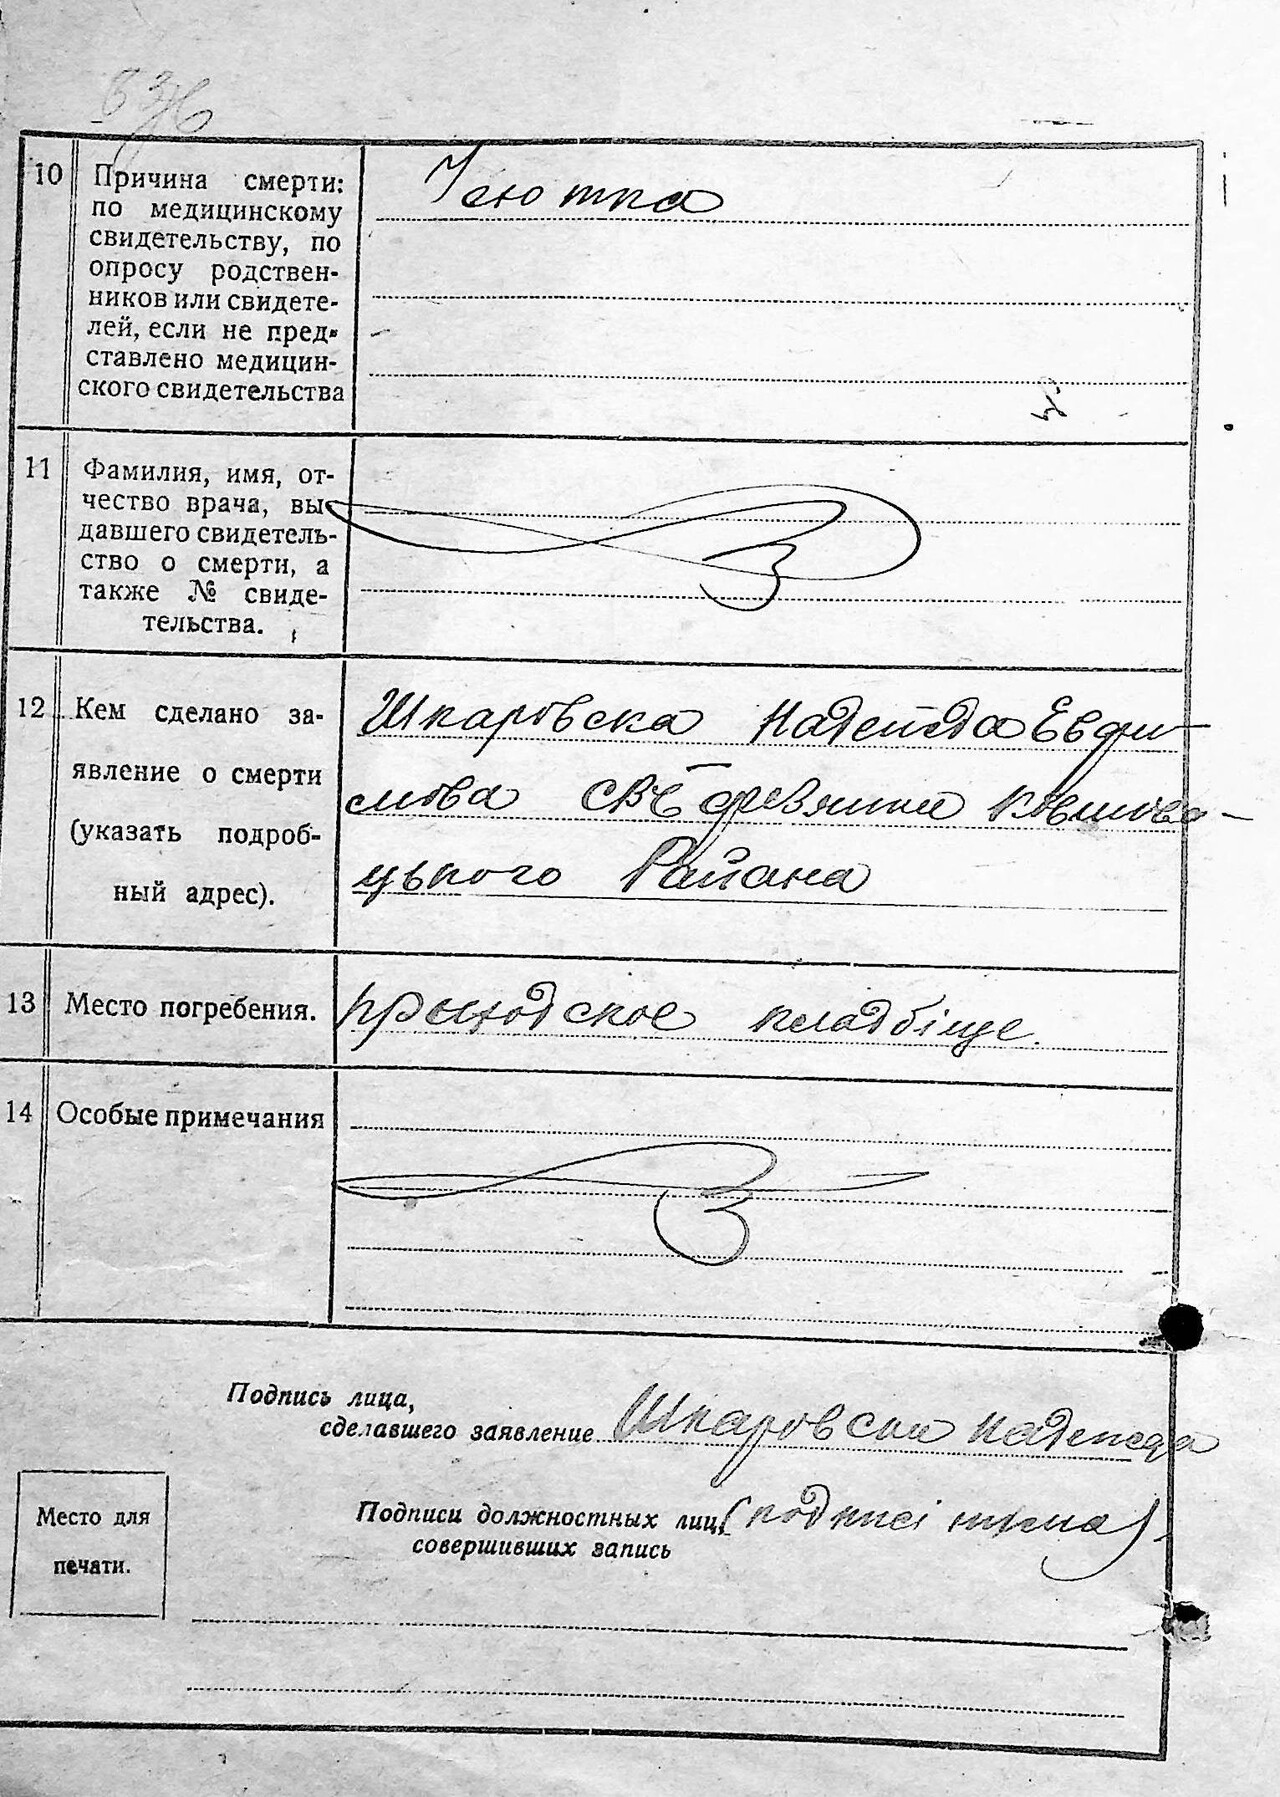 10 Причина смерти:
по медицинскому
свидетельству, по
опросу родствен-
ников или свидете-
лей, если не пред-
ставлено медицин-
ского свидетельства
11 Фамилия, имя, от-
чество врача, вы
давшего свидетель-
ство о смерти, а
также № свиде-
тельства.
12 Кем сделано за-
явление о смерти
(указать подроб-
ный адрес).
Шкаровска Надежда Евфи-
мова
цького Района
13 Место погребения.
прыходское кладбіще.
14 Особые примечания
Подпись лица,
сделавшего заявление Шкаровска Надежда
Подписи должностных лиц (подписі нема).
совершивших запись
Место для
печати.